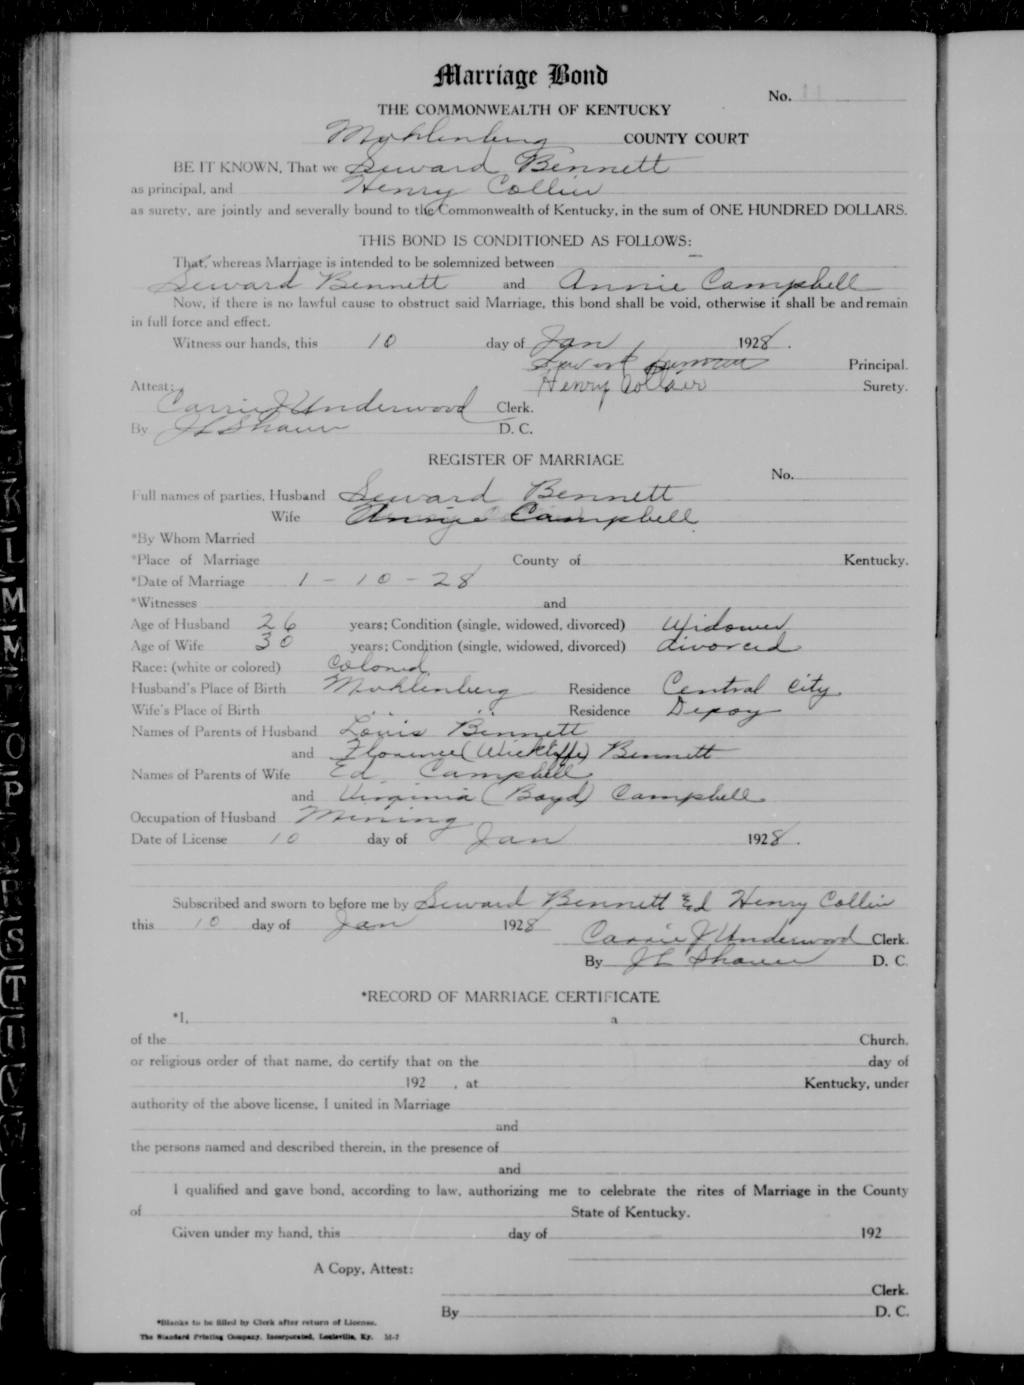 Marriage Bond
No. 11
THE COMMONWEALTH OF KENTUCKY
Muhlenberg COUNTY COURT
BE IT KNOWN, That we Seward Bennett
as principal, and Henry Collier
as surety, are jointly and severally bound to the Commonwealth of Kentucky, in the sum of ONE HUNDRED DOLLARS.
THIS BOND IS CONDITIONED AS FOLLOWS:
That, whereas Marriage is intended to be solemnized between
Seward Bennett and Annie Campbell
Now, if there is no lawful cause to obstruct said Marriage, this bond shall be void, otherwise it shall be and remain
in full force and effect.
Witness our hands, this 10 day of Jan 1928.
Seward Bennett Principal.
Attest: Henry Collier Surety.
Carrie J Underwood Clerk.
By J L Shaver D. C.
REGISTER OF MARRIAGE
No.
Full names of parties, Husband Seward Bennett
Wife Annie Campbell
*By Whom Married
*Place of Marriage County of Kentucky.
*Date of Marriage 1 - 10 - 28
*Witnesses and
Age of Husband 26 years; Condition (single, widowed, divorced) Widower
Age of Wife 30 years; Condition (single, widowed, divorced) divorced
Race: (white or colored) Colored
Husband's Place of Birth Muhlenberg Residence Central City
Wife's Place of Birth " " Residence Depoy
Names of Parents of Husband Louis Bennett
and Florence (Wickliffe) Bennett
Names of Parents of Wife Ed Campbell
and Virginia (Boyd) Campbell
Occupation of Husband Mining
Date of License 10 day of Jan 1928.
Subscribed and sworn to before me by Seward Bennett Ed Henry Collier
this 10 day of Jan 1928
Carrie J Underwood Clerk.
By J L Shaver D. C.
*RECORD OF MARRIAGE CERTIFICATE
*I, a
of the Church,
or religious order of that name, do certify that on the day of
192 , at Kentucky, under
authority of the above license, I united in Marriage
and
the persons named and described therein, in the presence of
and
I qualified and gave bond, according to law, authorizing me to celebrate the rites of Marriage in the County
of State of Kentucky.
Given under my hand, this day of 192
A Copy, Attest:
Clerk.
By D. C.
*Blanks to be filled by Clerk after return of License.
The Standard Printing Company, Incorporated, Louisville, Ky. M-7